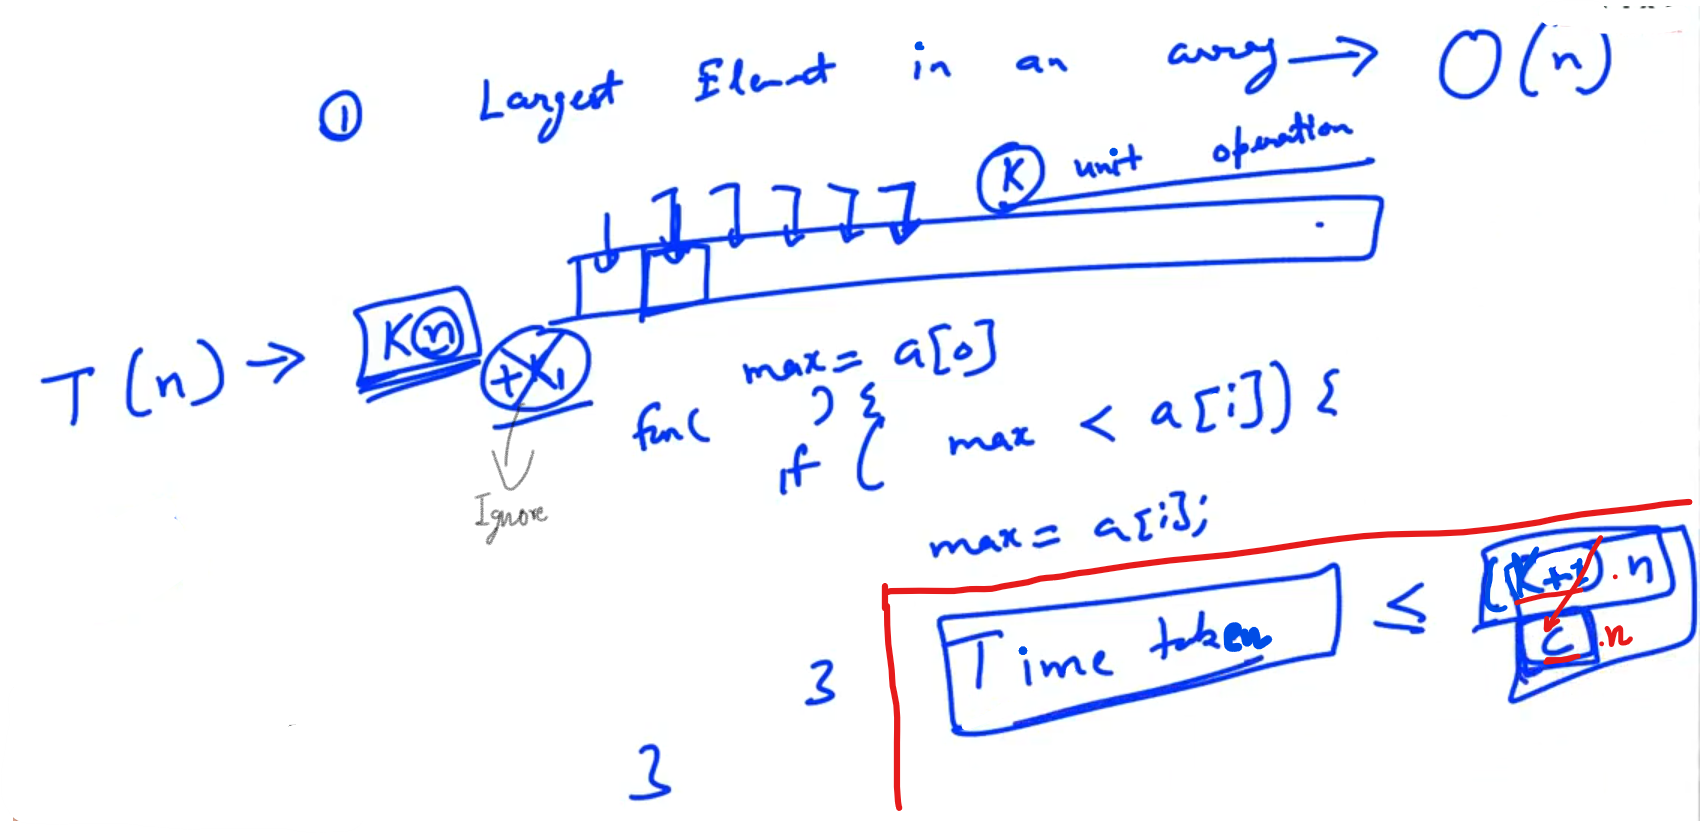 ① Largest Element in an array → O(n)
K unit operation
T(n) → Kn + K₁
Ignore
max = a[0]
fun( ) {
if ( max < a[i]) {
max = a[i];
}
}
Time taken ≤ (K+1).n
c.n